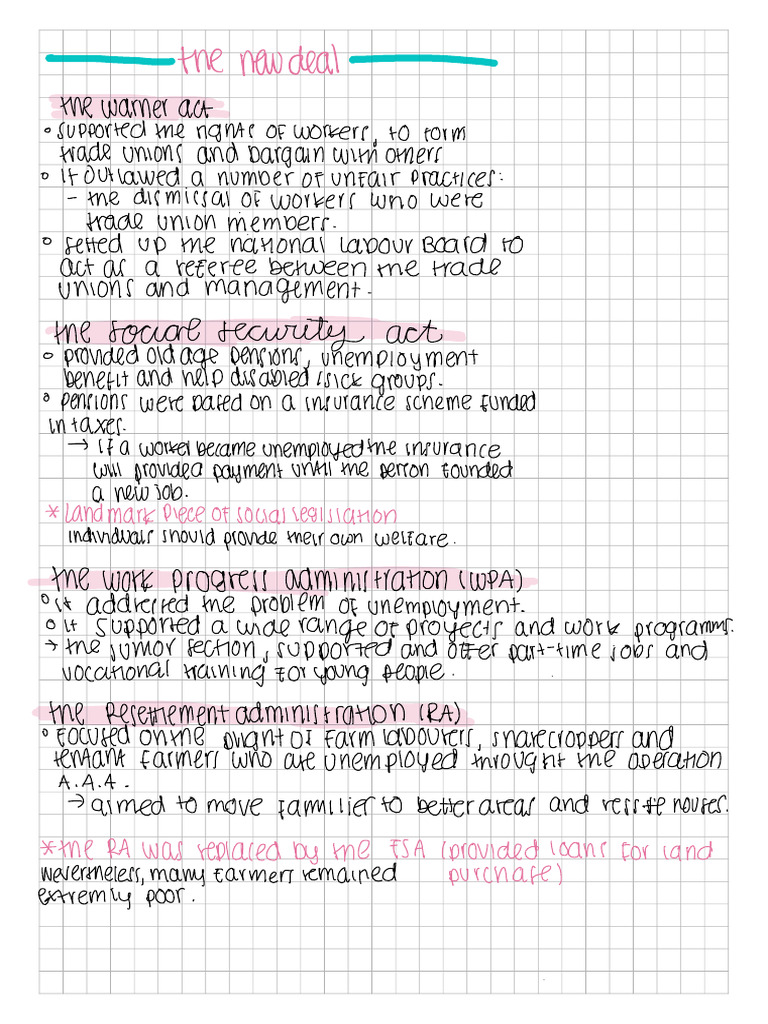 the new deal
the warner act
° supported the rights of workers, to form
trade unions and bargain with others
° it outlawed a number of unfair practices:
- the dismissal of workers who were
trade union members.
° setted up the national labour Board to
act as a referee between the trade
unions and management.
the social security act
° provided old age pensions, unemployment
benefit and help disabled/sick groups.
° pensions were based on a insurance scheme funded
in taxes.
→ if a worker became unemployed the insurance
will provided a payment until the person founded
a new job.
* landmark piece of social legislation
individuals should provide their own welfare.
the work progress administration (WPA)
° it addressed the problem of unemployment.
° it supported a wide range of proyects and work programms.
→ the junior section, supported and offer part-time jobs and
vocational training for young people.
the Resettlement administration (RA)
° focused on the plight of farm labourers, sharecroppers and
tennant farmers who are unemployed throught the operation
A.A.A.
→ aimed to move familier to better areas and houses.
* the RA was replaced by the FSA (provided loans for land
purchase)
nevertheless, many farmers remained
extremly poor.